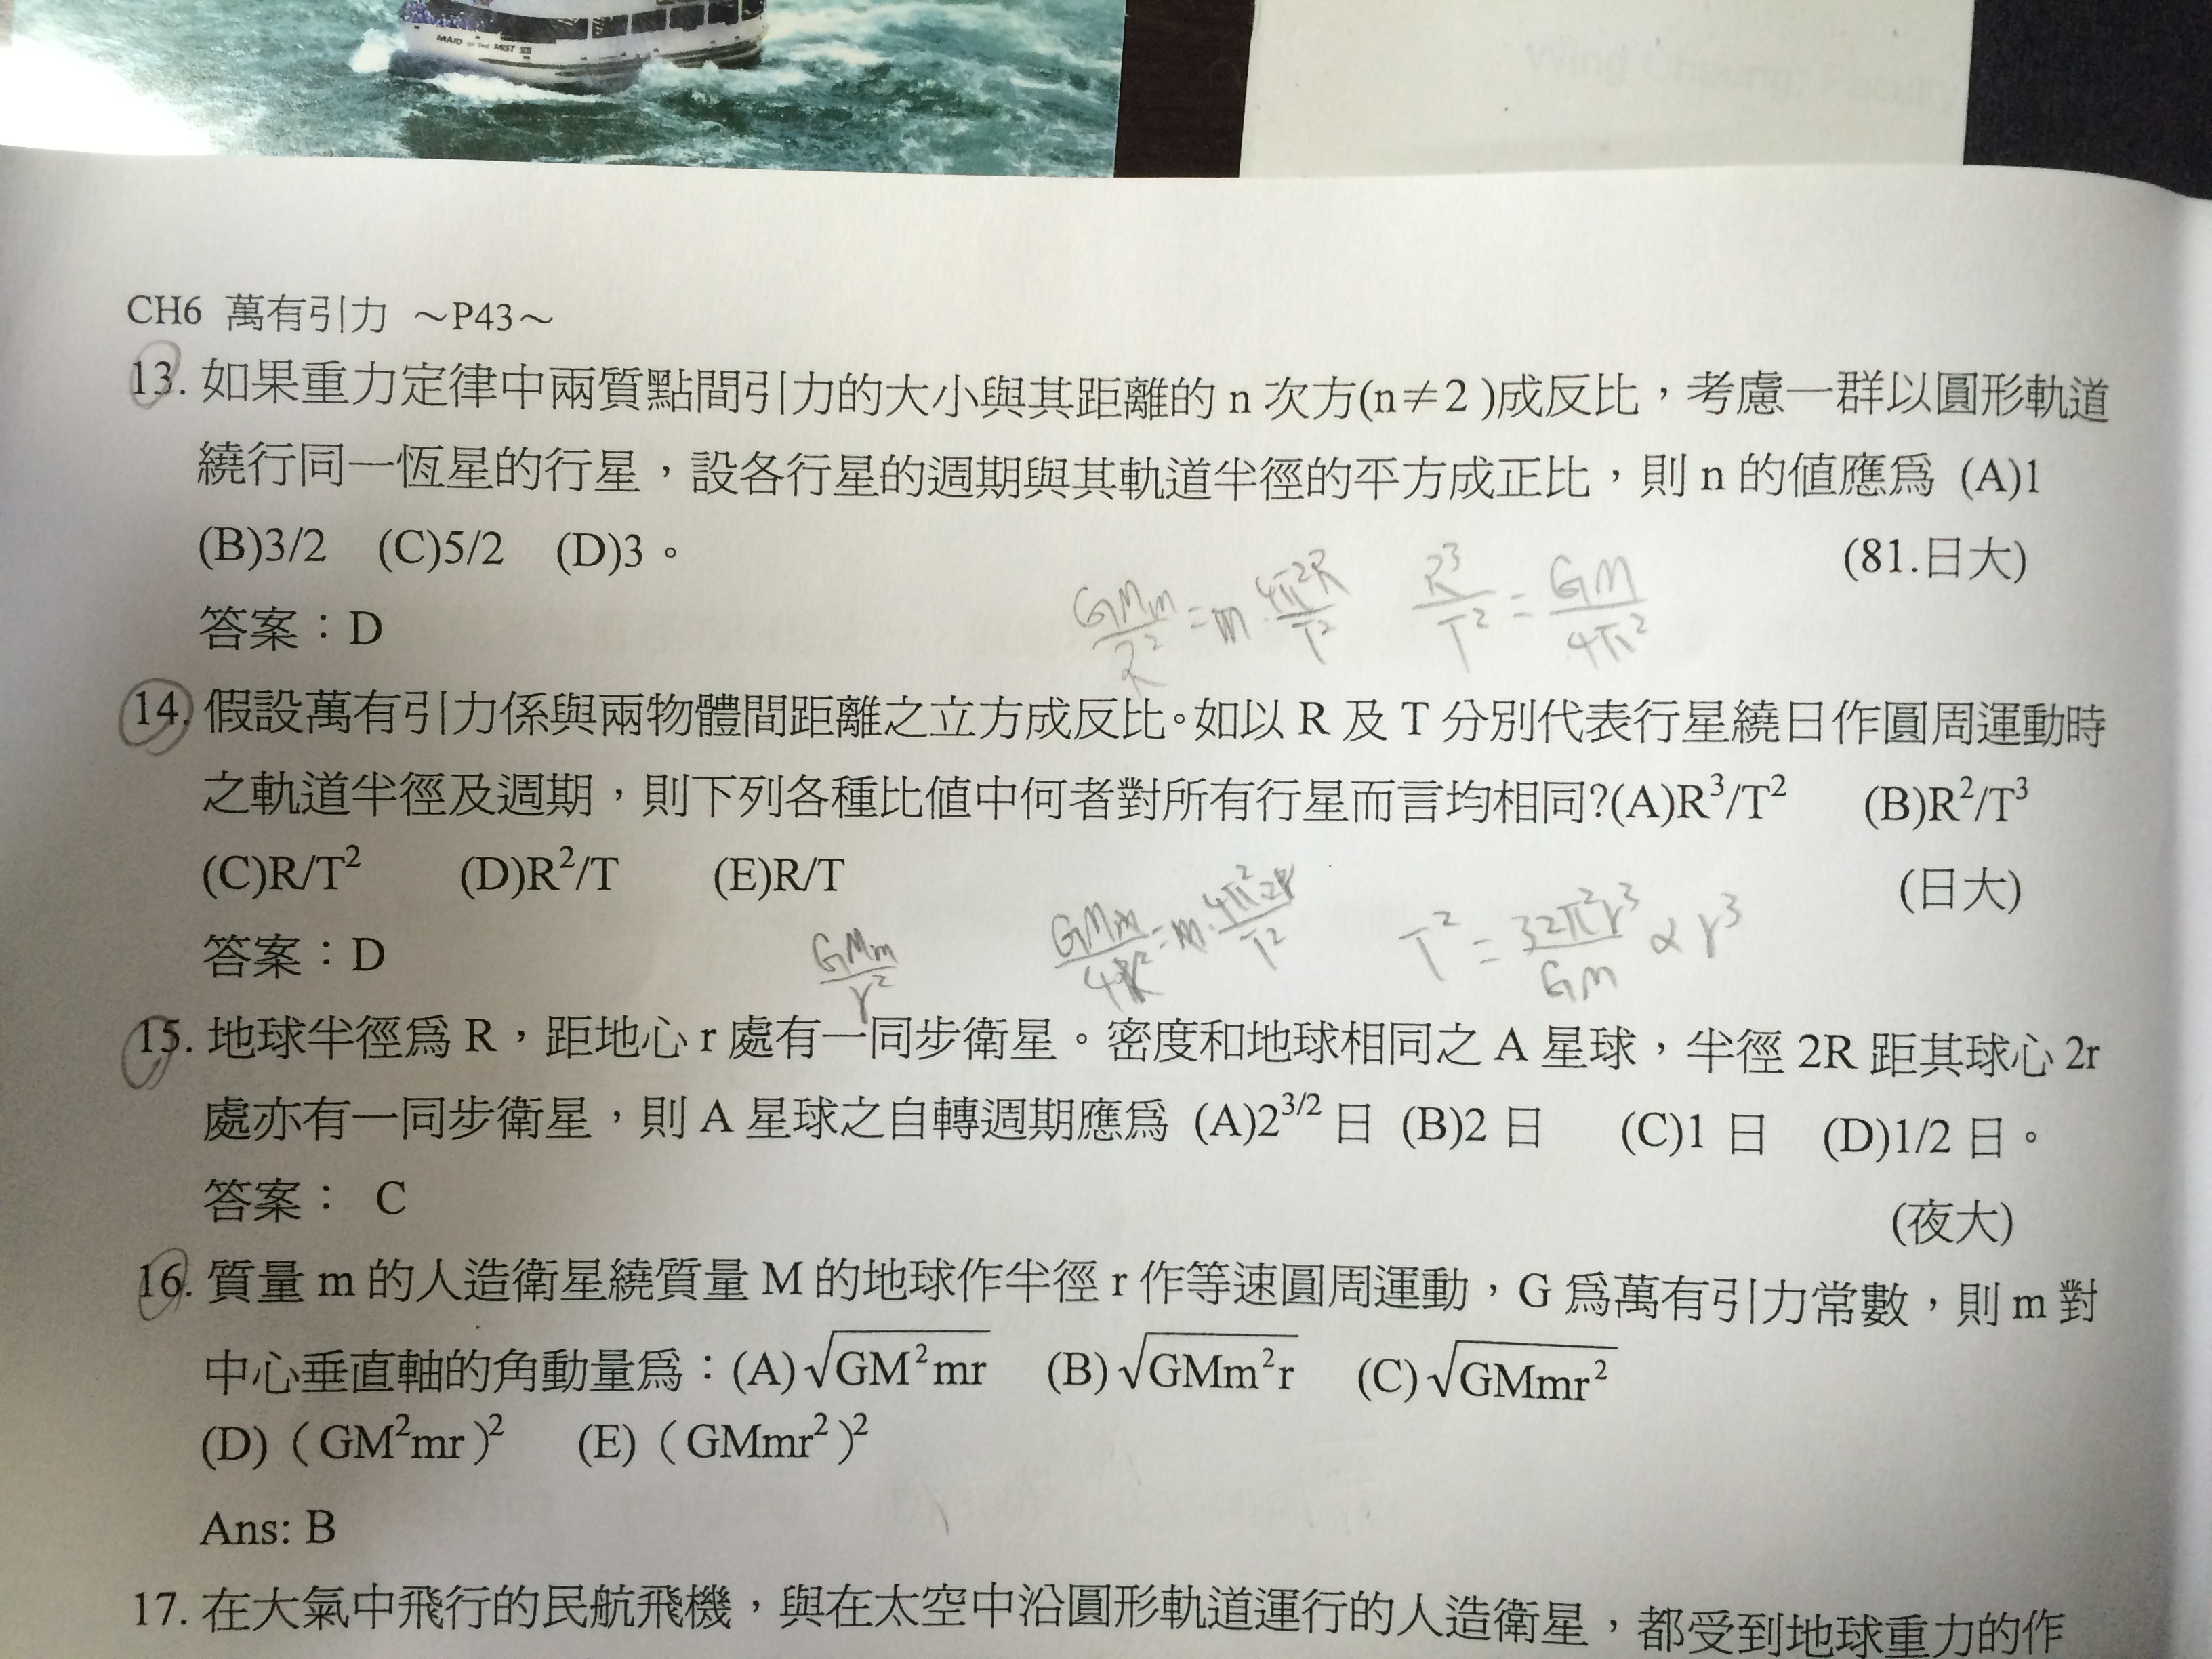 MAID OF THE MIST VII
Wing Cheung, Faculty
CH6 萬有引力 ～P43～
13. 如果重力定律中兩質點間引力的大小與其距離的 n 次方(n≠2 )成反比，考慮一群以圓形軌道
繞行同一恆星的行星，設各行星的週期與其軌道半徑的平方成正比，則 n 的值應為 (A)1
(B)3/2 (C)5/2 (D)3。 (81.日大)
GMm/R² = m·4π²R/T² R³/T² = GM/4π²
答案：D
14. 假設萬有引力係與兩物體間距離之立方成反比。如以 R 及 T 分別代表行星繞日作圓周運動時
之軌道半徑及週期，則下列各種比值中何者對所有行星而言均相同?(A)R³/T² (B)R²/T³
(C)R/T² (D)R²/T (E)R/T (日大)
答案：D
GMm/r² GMm/4r² = m·4π²2r/T² T² = 32π²r³/GM ∝ r³
15. 地球半徑為 R，距地心 r 處有一同步衛星。密度和地球相同之 A 星球，半徑 2R 距其球心 2r
處亦有一同步衛星，則 A 星球之自轉週期應為 (A)2^3/2 日 (B)2 日 (C)1 日 (D)1/2 日。
答案： C (夜大)
16. 質量 m 的人造衛星繞質量 M 的地球作半徑 r 作等速圓周運動，G 為萬有引力常數，則 m 對
中心垂直軸的角動量為：(A)√GM²mr (B)√GMm²r (C)√GMmr²
(D)（GM²mr）² (E)（GMmr²）²
Ans: B
17. 在大氣中飛行的民航飛機，與在太空中沿圓形軌道運行的人造衛星，都受到地球重力的作